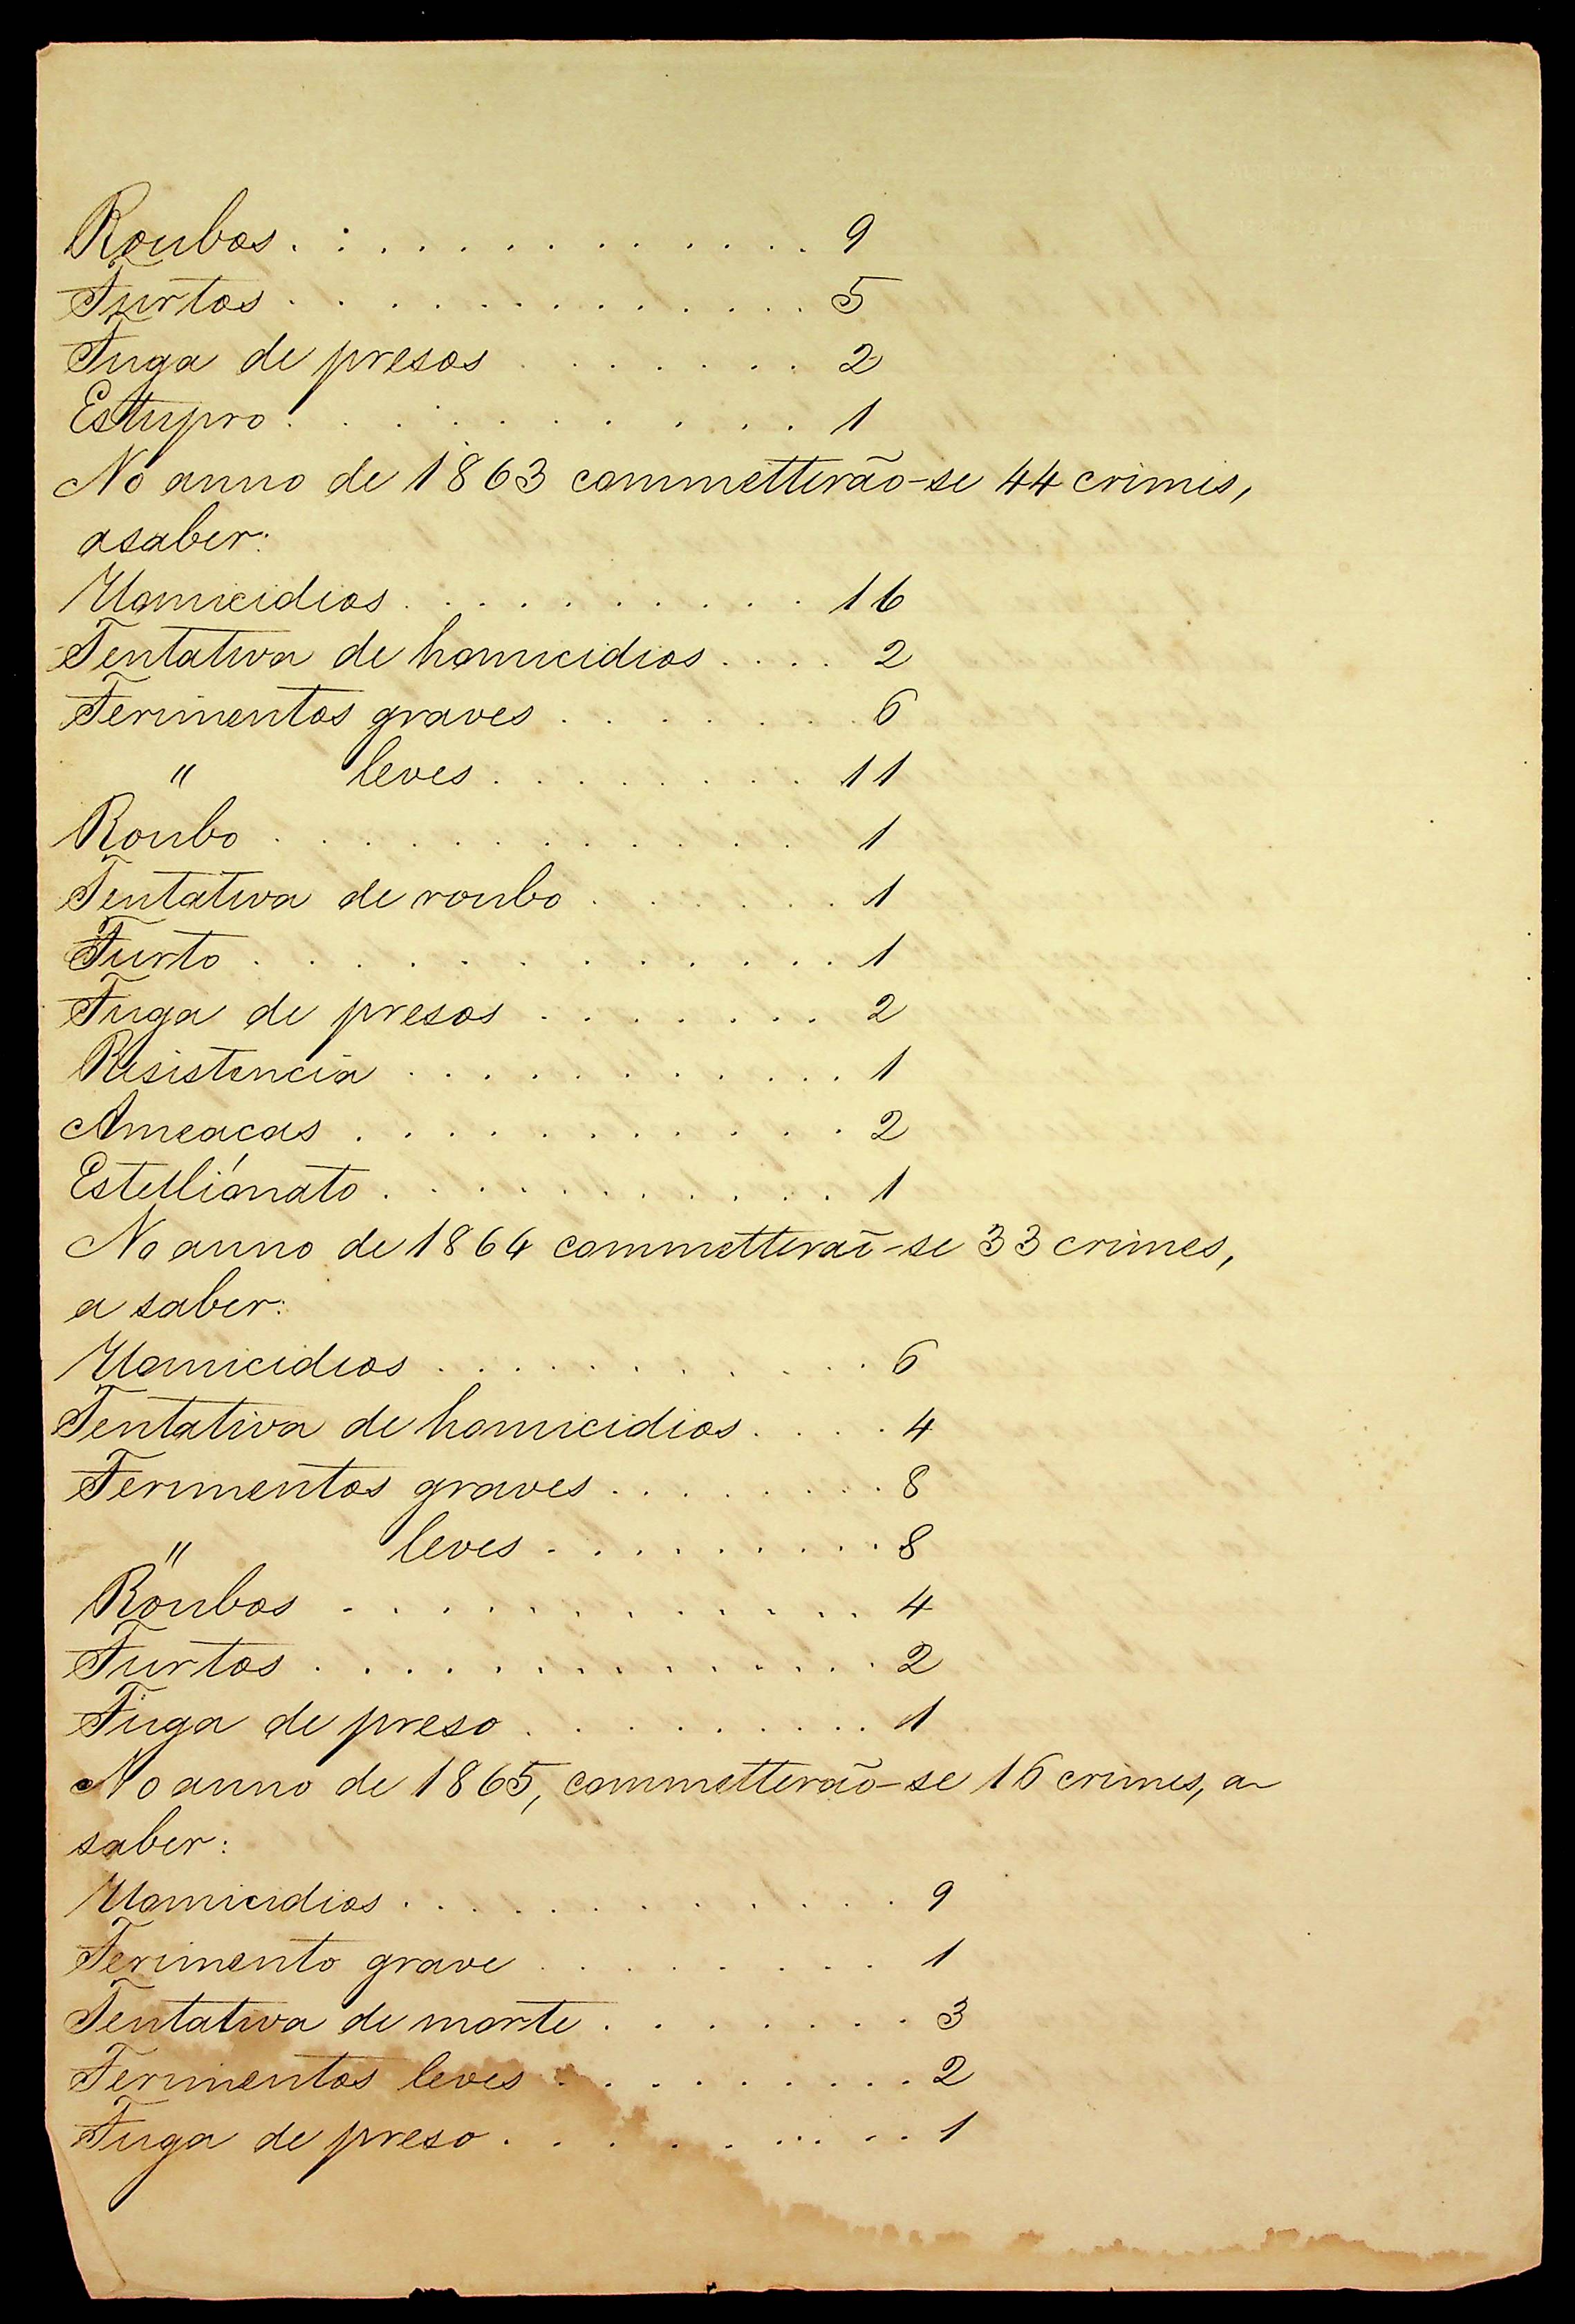 Roubos. : . . . . . . . . . . . 9
Furtos . . . . . . . . . . . . 5
Fuga de presos . . . . . . . 2
Estupro . . . . . . . . . . 1
No anno de 1863 commetterão-se 44 crimes,
asaber:
Homicidios . . . . . . . . . . 16
Tentativa de homicidios . . . . 2
Ferimentos graves . . . . . . . 6
" leves . . . . . . . . 11
Roubo . . . . . . . . . . . . 1
Tentativa de roubo . . . . . . 1
Furto . . . . . . . . . . . . 1
Fuga de presos . . . . . . . 2
Resistencia . . . . . . . . . . . 1
Ameacas . . . . . . . . . . . 2
Estelliónato . . . . . . . . . . 1
No anno de 1864 commetterão-se 33 crimes,
a saber:
Homicidios . . . . . . . . . . . 6
Tentativa de homicidios . . . . 4
Ferimentos graves . . . . . . . . 8
" leves . . . . . . . . . 8
Roubos . . . . . . . . . . . . 4
Furtos . . . . . . . . . . . . . 2
Fuga de preso . . . . . . . . . 1
No anno de 1865, commetterão-se 16 crimes, a
saber:
Homicidios . . . . . . . . . . . . 9
Ferimento grave . . . . . . . . . 1
Tentativa de morte . . . . . . . . 3
Ferimentos leves . . . . . . . . . 2
Fuga de preso . . . . . . . . . . 1